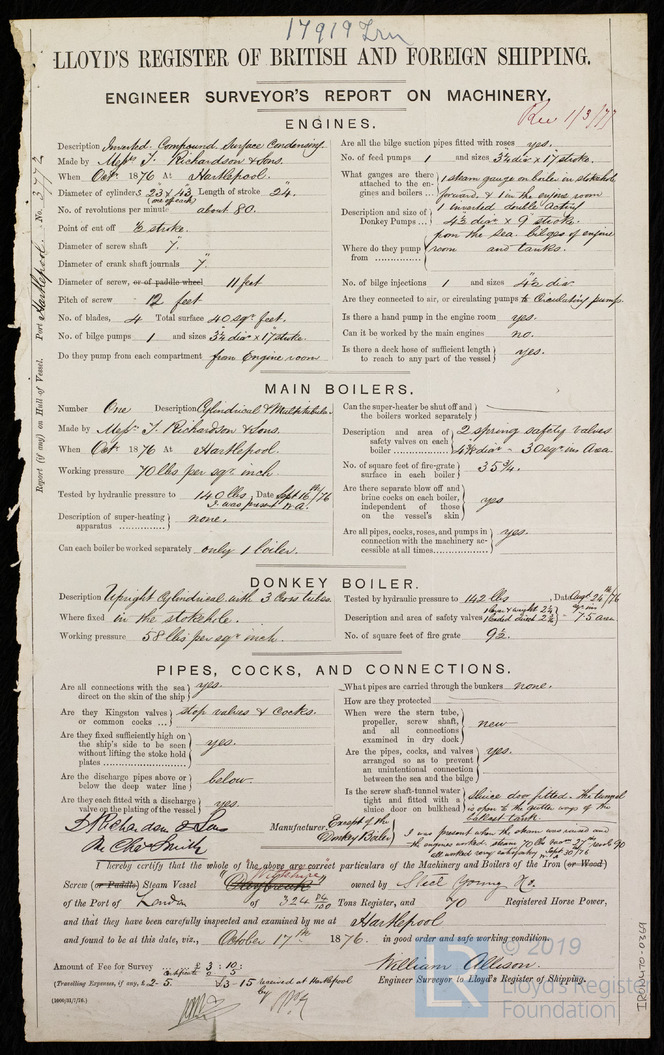 17919 Irn
LLOYD'S REGISTER OF BRITISH AND FOREIGN SHIPPING.
ENGINEER SURVEYOR'S REPORT ON MACHINERY,
Rec 1/3/77
Report (if any) on Hull of Vessel. Port Hartlepool No. 3772
ENGINES.
Description Inverted Compound Surface Condensing
Made by Messrs. T. Richardson & Sons.
When Octr. 1876 At Hartlepool.
Diameter of cylinders 23" & 43" Length of stroke 24"
(one of each)
No. of revolutions per minute about 80.
Point of cut off ½ stroke.
Diameter of screw shaft 7"
Diameter of crank shaft journals 7"
Diameter of screw, or of paddle wheel 11 feet
Pitch of screw 12 feet
No. of blades, 4 Total surface 40 sqr. feet.
No. of bilge pumps 1 and sizes 3¼ diar x 17" stroke.
Do they pump from each compartment from Engine room
Are all the bilge suction pipes fitted with roses yes.
No. of feed pumps 1 and sizes 3¼ diar x 17 stroke.
What gauges are there attached to the engines and boilers 1 steam gauge on boiler in stokehole forward. & 1 in the engine room
Description and size of Donkey Pumps 1 inverted double acting 4½ diar x 9" stroke.
Where do they pump from from the sea. bilges of engine room and tanks.
No. of bilge injections 1 and sizes 4½ diar
Are they connected to air, or circulating pumps to Circulating pumps.
Is there a hand pump in the engine room yes.
Can it be worked by the main engines no.
Is there a deck hose of sufficient length to reach to any part of the vessel yes.
MAIN BOILERS.
Number One Description Cylindrical & Multitubular
Made by Messrs. T. Richardson & Sons.
When Octr. 1876 At Hartlepool.
Working pressure 70 lbs per sqr. inch
Tested by hydraulic pressure to 140 lbs, Date Sept 16th/76
I was present W.A.
Description of super-heating apparatus none.
Can each boiler be worked separately only 1 boiler.
Can the super-heater be shut off and the boilers worked separately
Description and area of safety valves on each boiler 2 spring safety valves 4⅜ diar - 30 sqr. ins Area
No. of square feet of fire-grate surface in each boiler 35¾.
Are there separate blow off and brine cocks on each boiler, independent of those on the vessel's skin yes
Are all pipes, cocks, roses, and pumps in connection with the machinery accessible at all times yes.
DONKEY BOILER.
Description Upright Cylindrical with 3 Cross tubes.
Where fixed in the stokehole.
Working pressure 58 lbs per sqr. inch.
Tested by hydraulic pressure to 142 lbs, Date Augt 26th/76
Description and area of safety valves 1 lever & weight 2¼ 1 loaded direct 2¼ sqr ins 7·5 area
No. of square feet of fire grate 9½.
PIPES, COCKS, AND CONNECTIONS.
Are all connections with the sea direct on the skin of the ship yes.
Are they Kingston valves or common cocks stop valves & cocks.
Are they fixed sufficiently high on the ship's side to be seen without lifting the stoke hold plates yes.
Are the discharge pipes above or below the deep water line below.
Are they each fitted with a discharge valve on the plating of the vessel yes
What pipes are carried through the bunkers none.
How are they protected
When were the stern tube, propeller, screw shaft, and all connections examined in dry dock new
Are the pipes, cocks, and valves arranged so as to prevent an unintentional connection between the sea and the bilge yes.
Is the screw shaft-tunnel water tight and fitted with a sluice door on bulkhead sluice door fitted - the tunnel is open to the gutter ways of the ballast tank.
T Richardson & Sons
Manufacturer Except of the Donkey Boiler
I was present when the steam was raised and the engines worked. steam 70 lbs 27th revols 90
all worked very satisfactory Sept 30/76
W.A.
I hereby certify that the whole of the above are correct particulars of the Machinery and Boilers of the Iron (or Wood)
Screw (or Paddle) Steam Vessel owned by Steel Young & Co.
of the Port of London of 324 84/100 Tons Register, and 70 Registered Horse Power,
and that they have been carefully inspected and examined by me at Hartlepool
and found to be at this date, viz., October 17th 1876. in good order and safe working condition.
Amount of Fee for Survey £ 3 : 10 :
certificate 0 5
£3-15 received at Hartlepool by
(Travelling Expenses, if any, £ 2-5.
William Allison.
Engineer Surveyor to Lloyd's Register of Shipping.
© 2019
LR Lloyd's Register Foundation
IRON470-0369